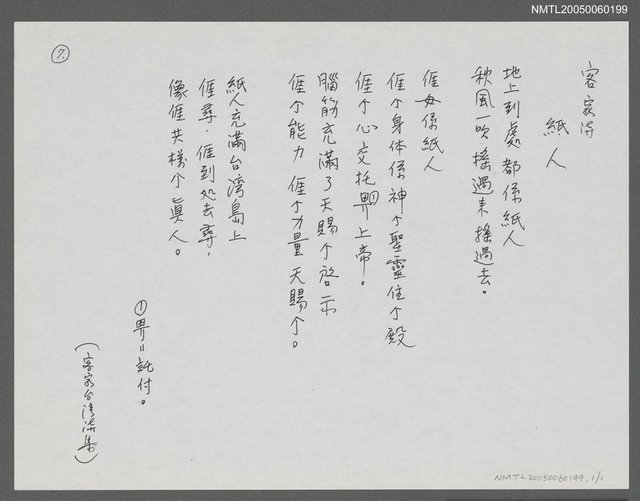 NMTL20050060199
7.
客家詩
紙人
地上到處都係紙人
秋風一吹搖過來搖過去。
𠊎毋係紙人
𠊎个身体係神个聖靈住个殿
𠊎个心交托畀①上帝。
腦筋充滿了天賜个啓示
𠊎个能力,𠊎个力量天賜个。
紙人充滿台湾島上
𠊎尋,𠊎到処去尋,
像𠊎共樣个眞人。
①畀=託付。
(客家台湾詩集)
NMTL20050060199, 1/1